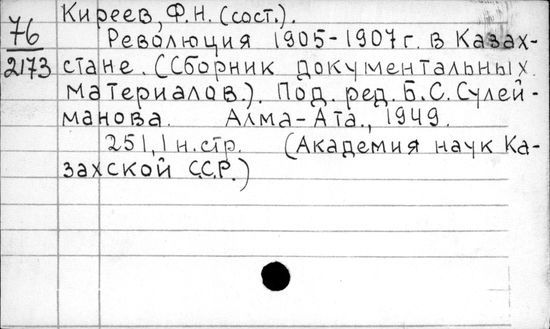 Киреев, Ф.Н. (сост.).
76
2173
Революция 1905-1907 г. в Казах-
стане. (Сборник документальных
материалов.). Под. ред. Б.С. Сулей-
манова. Алма-Ата., 1949.
251, 1 н.стр. (Академия наук Ка-
захской С.С.Р.)